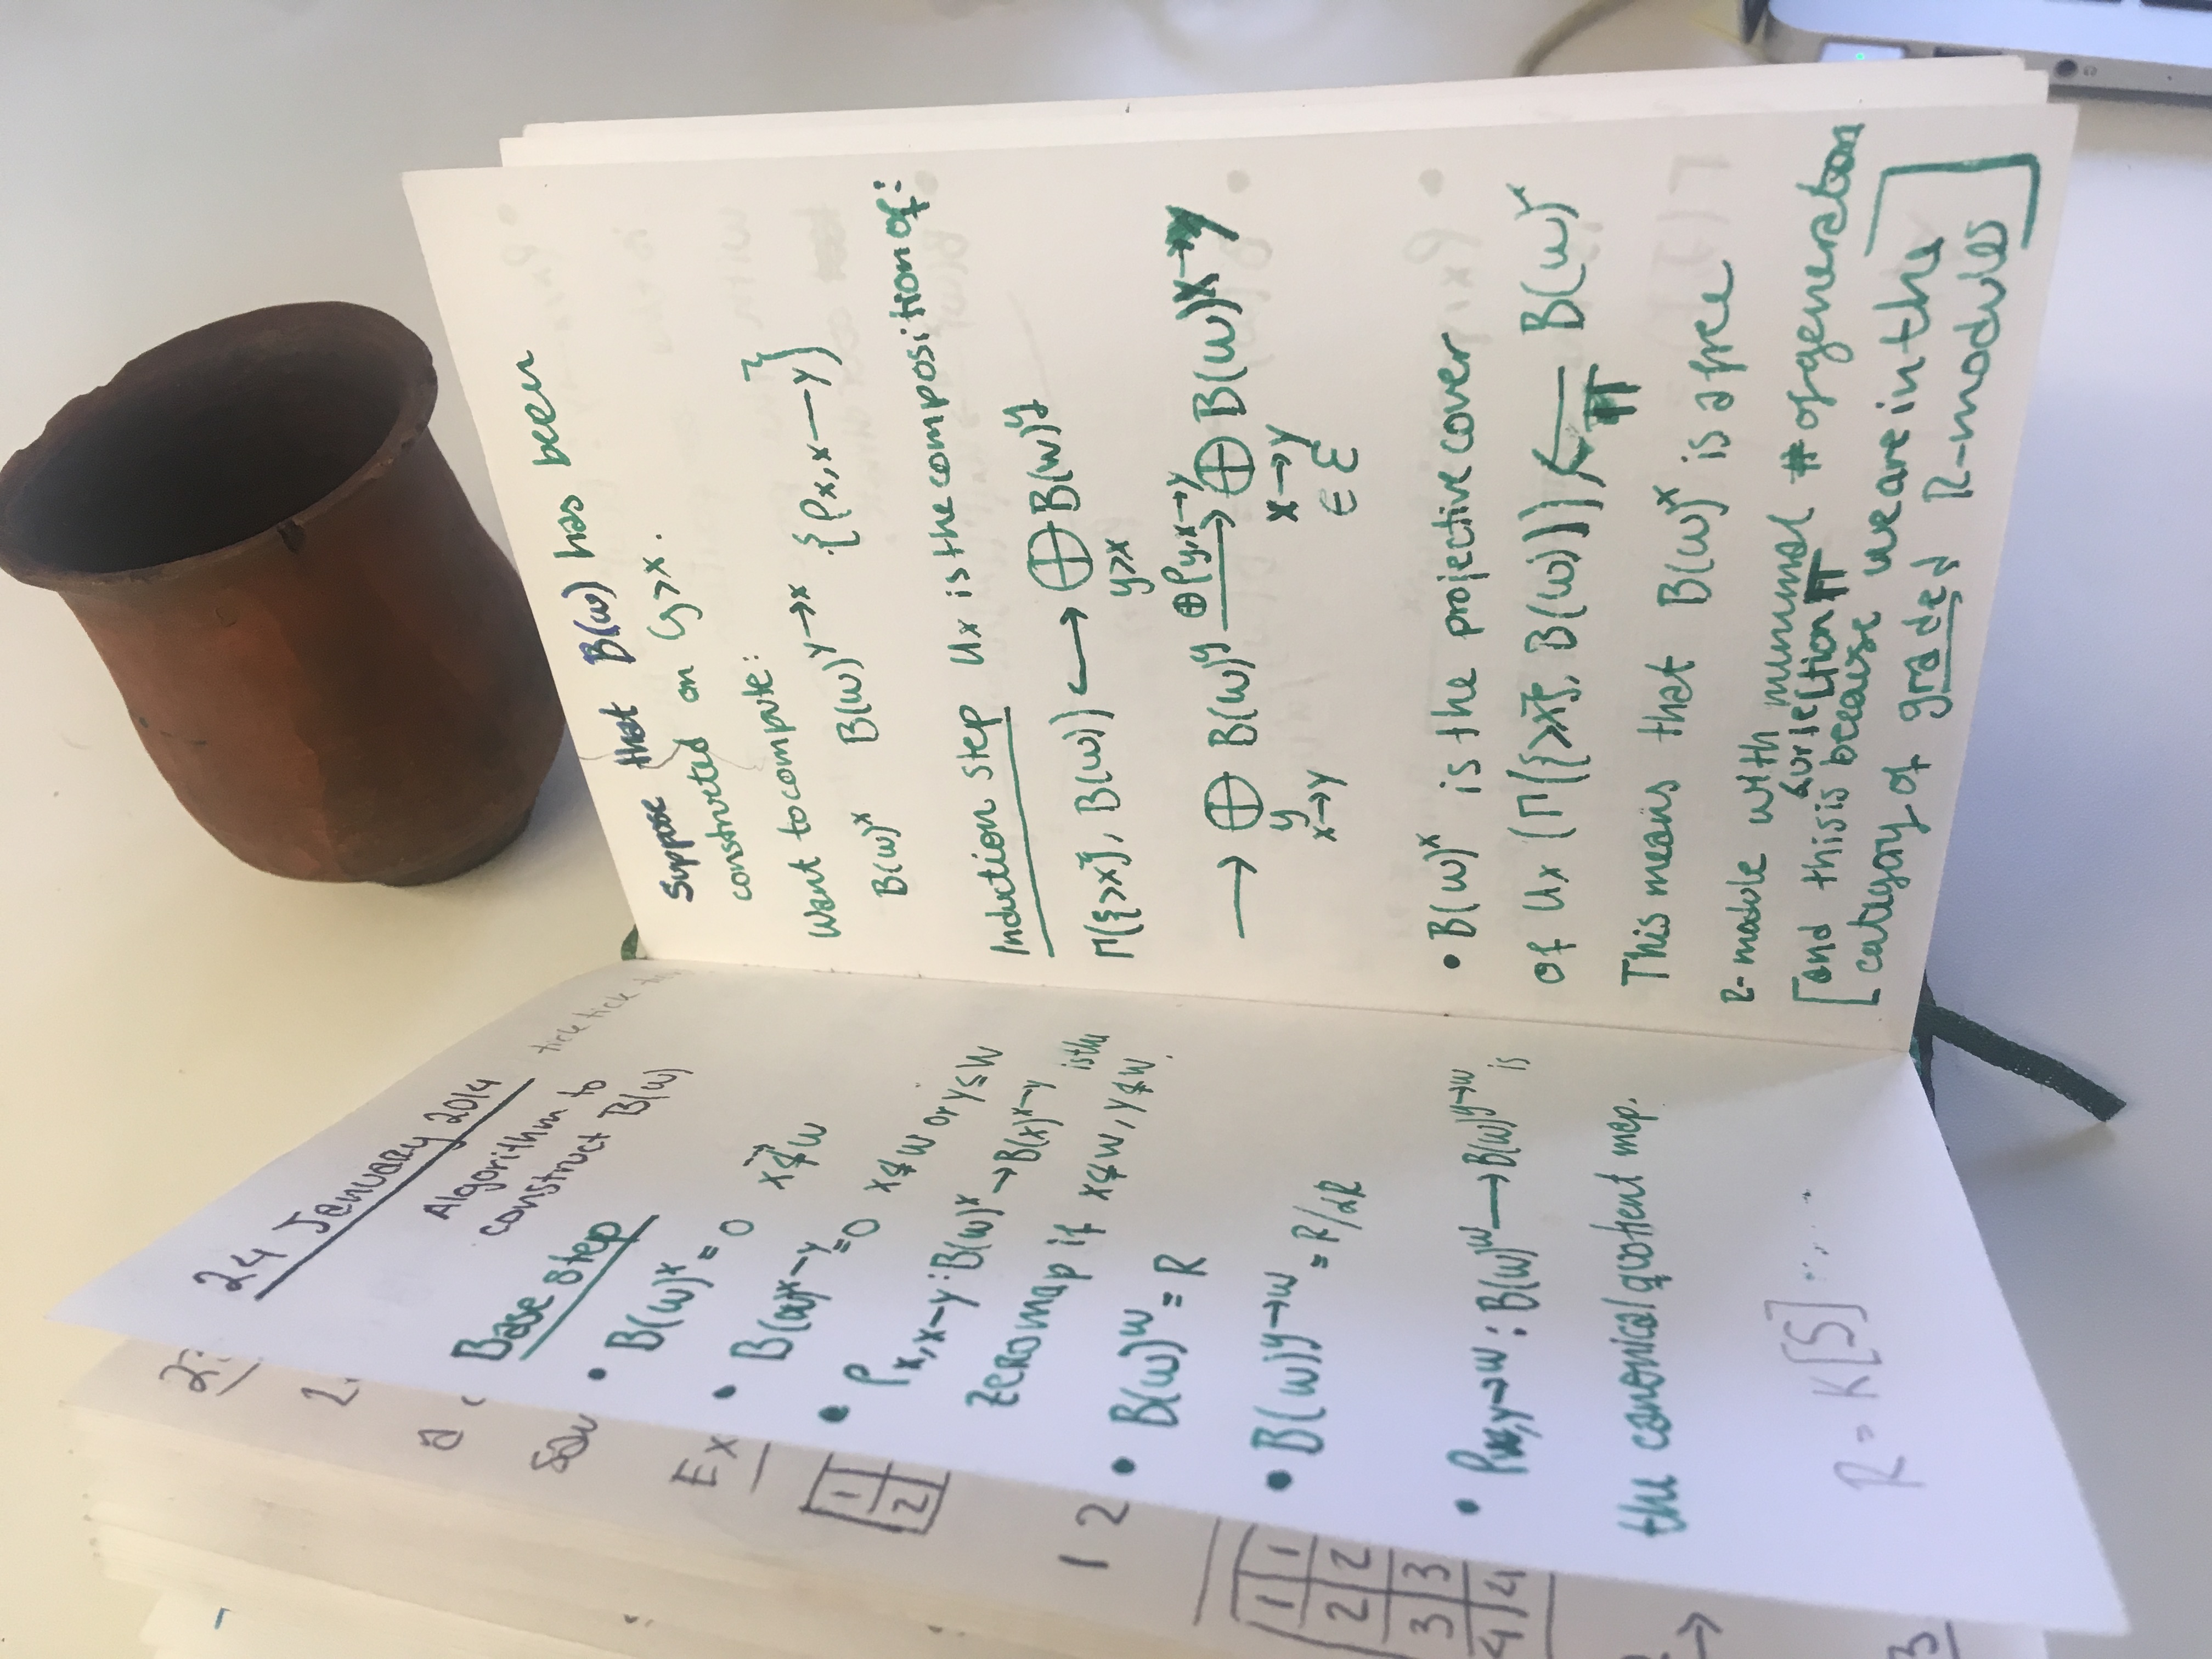 24 January 2014
Algorithm to
construct B(w)
tick tick
Base Step
• B(w)^x = 0 x ≰ w
• B(w)^{x→y} = 0 x ≰ w or y ≰ w
• ρ_{x,x→y} : B(w)^x → B(x)^{x→y} is the
zero map if x ≰ w, y ≰ w.
• B(w)^w = R
• B(w)^{y→w} = R/αR
• ρ_{w,y→w} : B(w)^w → B(w)^{y→w} is
the canonical quotient map.
R = K[S]
Suppose that B(w) has been
constructed on y > x.
want to compute:
B(w)^x B(w)^{y→x} {ρ_{x,x→y}}
Induction step u_x is the composition of:
Γ({>x}, B(w)) ↪ ⊕_{y>x} B(w)^y
→ ⊕_{y x→y} B(w)^y ⊕ρ_{y,x→y} → ⊕_{x→y ∈ ℰ} B(w)^{x→y}
• B(w)^x is the projective cover
of u_x (Γ({>x}, B(w))) ↞π B(w)^x
This means that B(w)^x is a free
R-module with minimal # of generators
[and this surjection π
is because we are in the
category of graded R-modules]
23
2
a
Ex
1
2
1 2
1 1
2 2
3 3
4 4
→
3